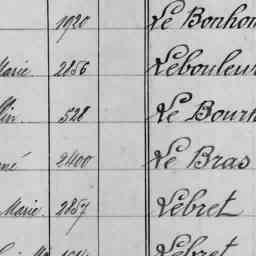 1920 Le Bonhom
Marie 2856 Lebouleur
528 Le Bourh
mé 2400 Le Bras
Marie. 2857 Lebret
Lebret